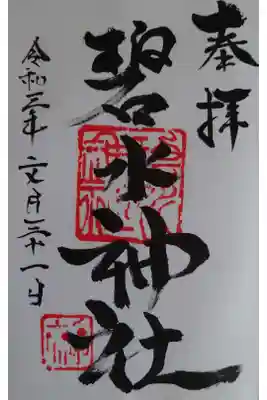 奉拝
碧水神社
令和三年文月三十一日